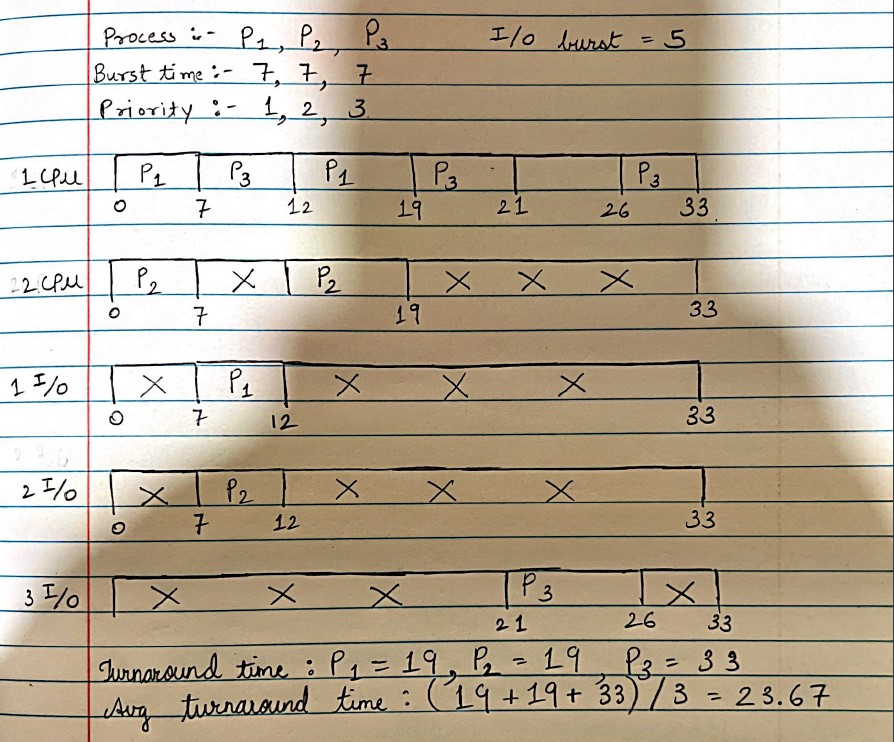 Process :- P1, P2, P3 I/O burst = 5
Burst time :- 7, 7, 7
Priority :- 1, 2, 3
1 CPU P1 P3 P1 P3 P3
0 7 12 19 21 26 33
2 CPU P2 X P2 X X X
0 7 19 33
1 I/O X P1 X X X
0 7 12 33
2 I/O X P2 X X X
0 7 12 33
3 I/O X X X P3 X
21 26 33
Turnaround time : P1 = 19, P2 = 19, P3 = 33
Avg turnaround time : (19 + 19 + 33) / 3 = 23.67